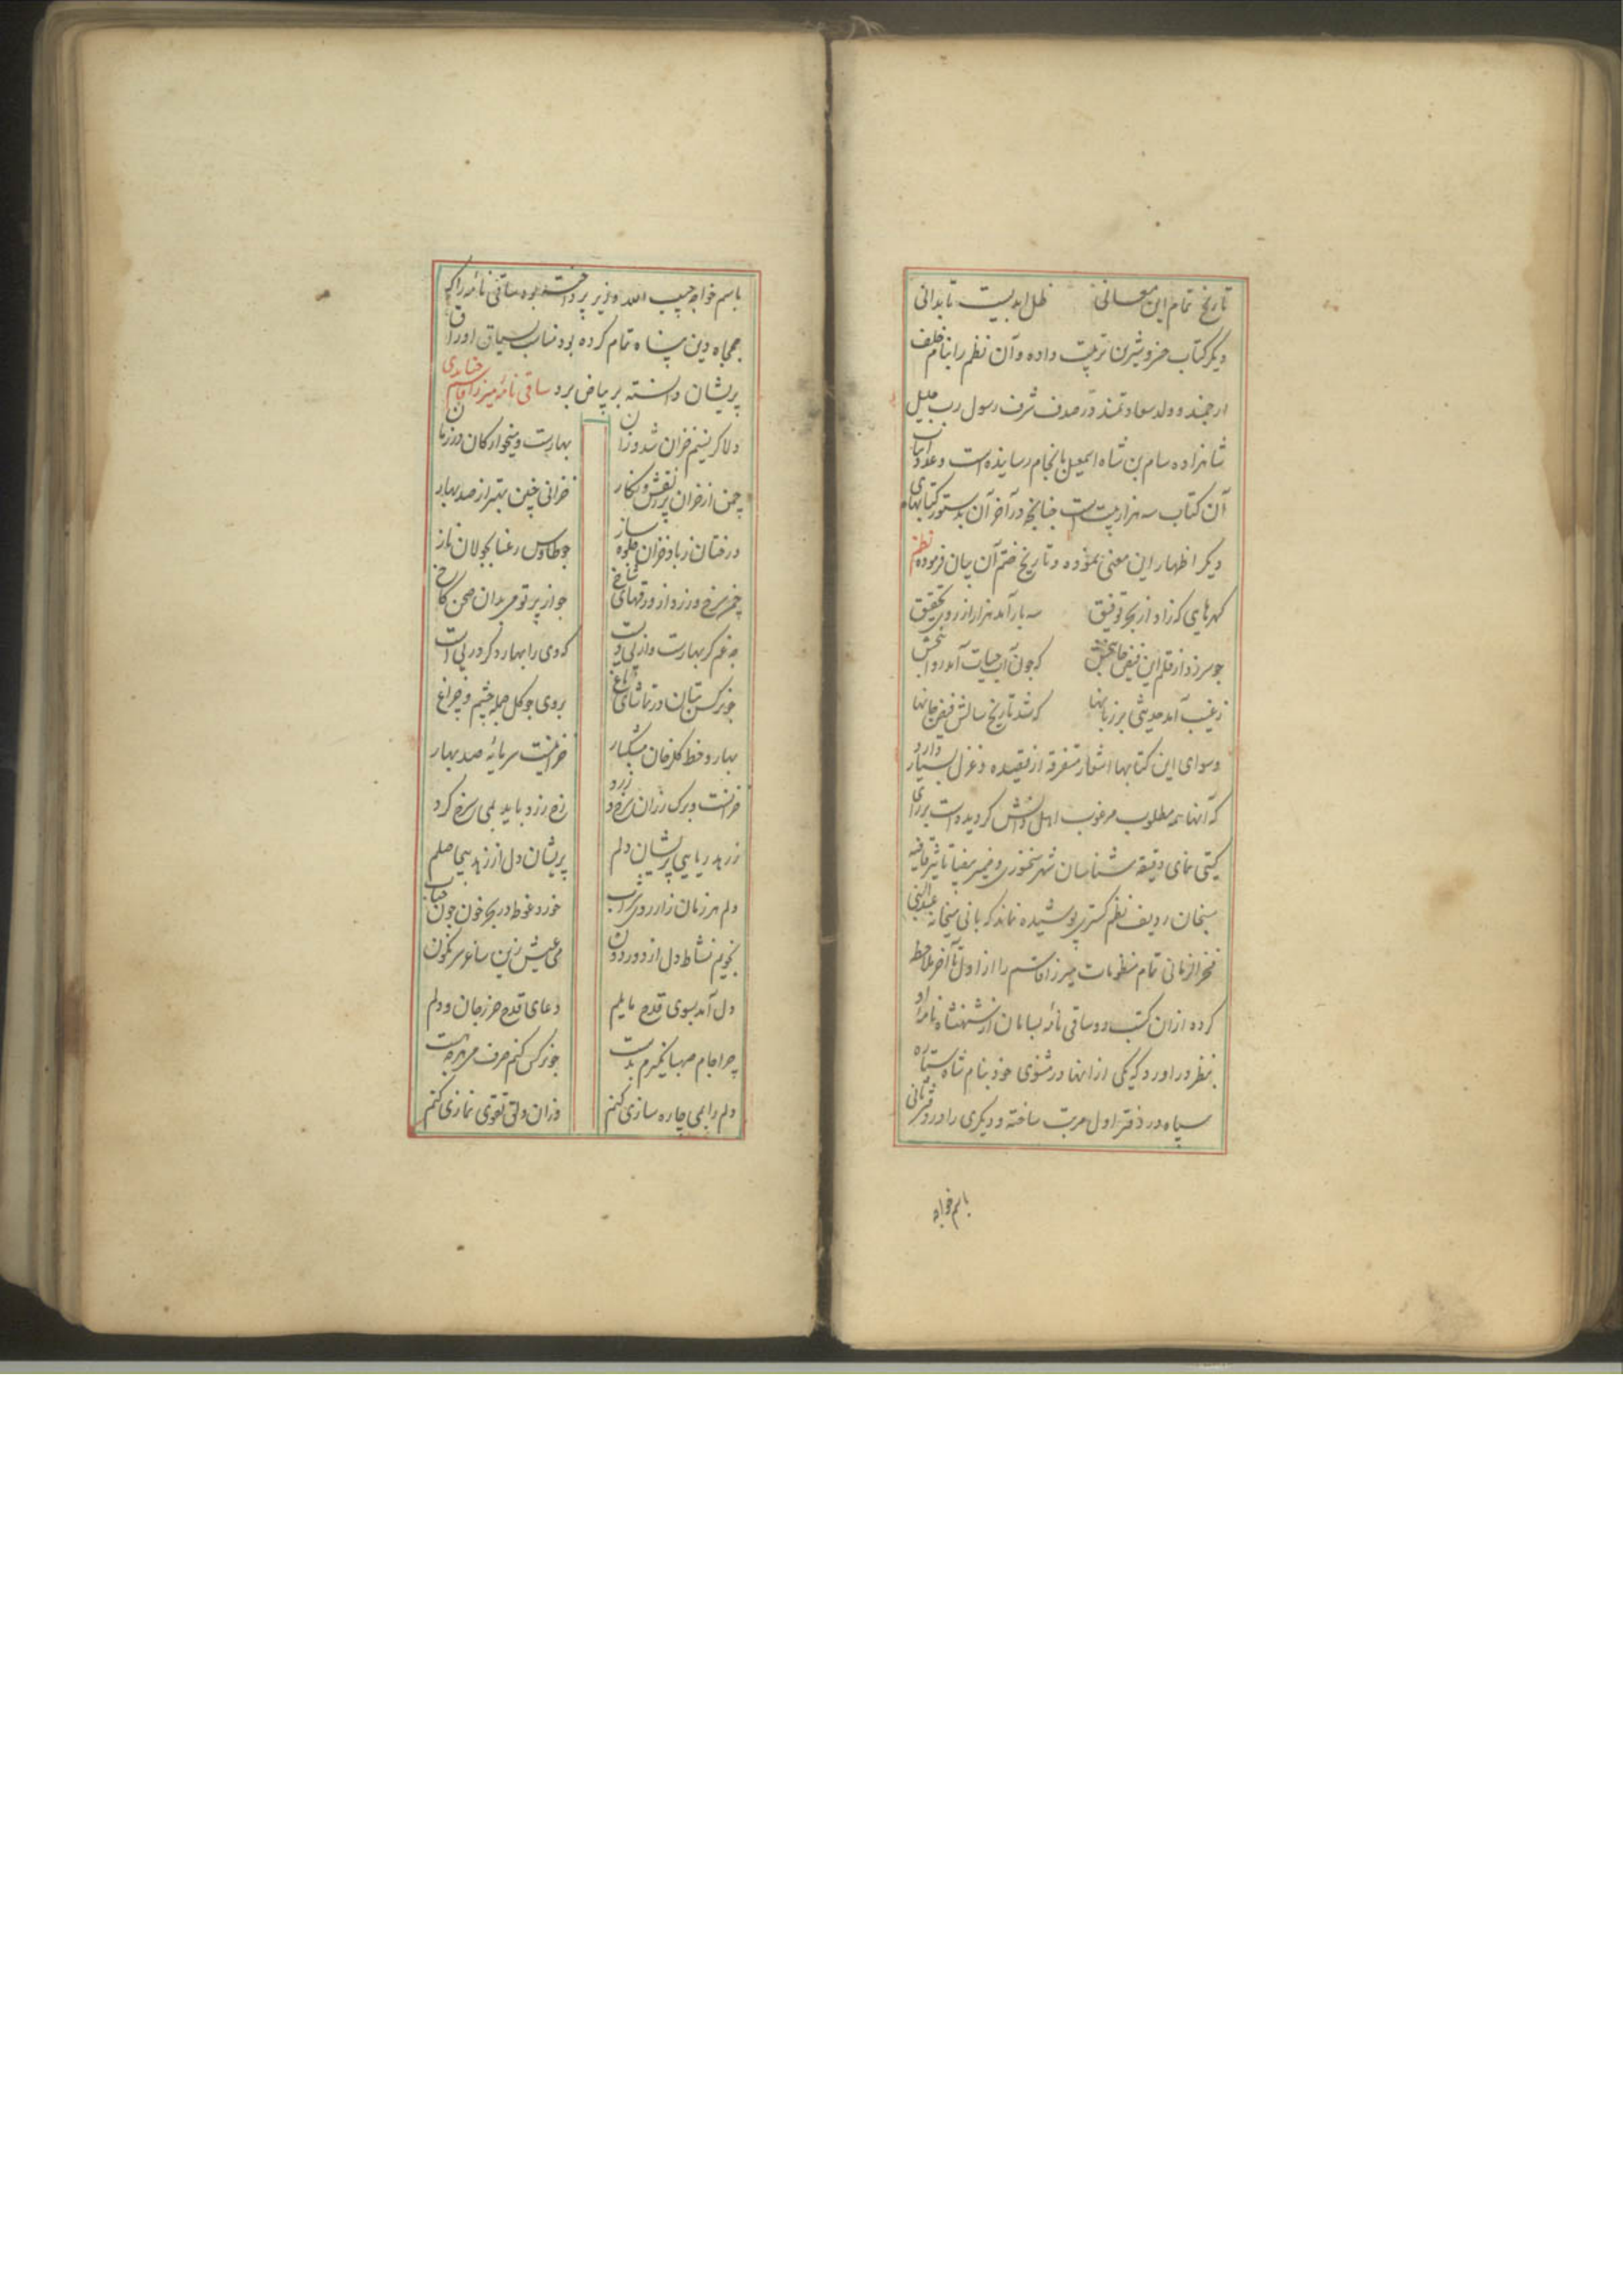 تاریخ تمام این معانی ظل ابدیست تا بدانی
دیگر کتاب خسرو شیرین ترتیب داده و آن نظم را بنام خلف
ارجمند و ولد سعادتمند در صدف شرف رسول رب جلیل
شاهزاده سام بن شاه اسمعیل بانجام رسانیده است و عدد ابیات
آن کتاب سه هزار بیت است چنانچه در آخر آن بدستور کتابهای
دیگر اظهار این معنی نموده و تاریخ ختم آن بیان فرموده نظم
گهرهایی که زاد از بحر توفیق سه بار آمد هزار از روی تحقیق
چو سر زد از قلم این فیض جانبخش که چون آب حیات آمد روانبخش
ز غیب آمد حدیثی بر زبانها که شد تاریخ سالش فیض جانها
و سوای این کتابها اشعار متفرقه از قصیده و غزل بسیار دارد
که آنها همه مطلوب و مرغوب اهل دانش گردیده است بر رای
گیتی نمای دقیقه شناسان شهر سخنوری و ضمیر تاثیر قافیه
سنجان ردیف نظم گستری پوشیده نماند که بانی میخانه عبدالنبی
فخرالزمانی تمام منظومات میرزا قاسم را از اول تا آخر ملاحظه
کرده از ان کتب دو ساقی نامه بسامان از شهنشاه نامه او
بنظر در اورد که یکی از انها در مثنوی خود بنام شاه ستاره
سپاه در دفتر اول مرتب ساخته و دیگری را در دفتر ثانی
باسم خواجه
باسم خواجه حبیب الله وزیر پرداخته بود ساقی نامه را که
جمجاه دین پناه تمام کرده بود مناسب سیاق اوراق
پریشان دانسته بر بیاض برد ساقی نامه میرزا قاسم جنابدی
دلا گر نسیم خزان شد وزان بهارست و میخوارگان در زمان
چمن از خزان پر ز نقش و نگار خزانی چنین بهتر از صد بهار
درختان ز باد خزان جلوه ساز چو طاوس رعنا بجولان ناز
چمن سرخ و زرد از ورقهای شاخ چو از پرتو می بدان صحن کاخ
چه غم گر بهارست و از پی دیست که دی را بهار دگر در پی است
چو نرگس ستان در تماشای باغ بروی چو گل جمله چشم و چراغ
بهار و خط گلرخان مشکبار خزانیست سرمایه صد بهار
خزانست و برگ رزان سرخ و زرد رخ زرد باید بمی سرخ کرد
ز زهد ریایی پریشان دلم پریشان دل از زهد بیحاصلم
دلم هر زمان ز ارزوی شراب خورد غوطه در بحر خون چون حباب
نجویم نشاط دل از دور دون می عیش زین ساغر سرنگون
دل آمد بسوی قدح مایلم دعای قدح حرز جان و دلم
چرا جام صهبا نگیرم بدست چو نرگس کنم صرف می هرچه هست
دلم را بمی چاره سازی کنم وزان دلق تقوی نمازی کنم